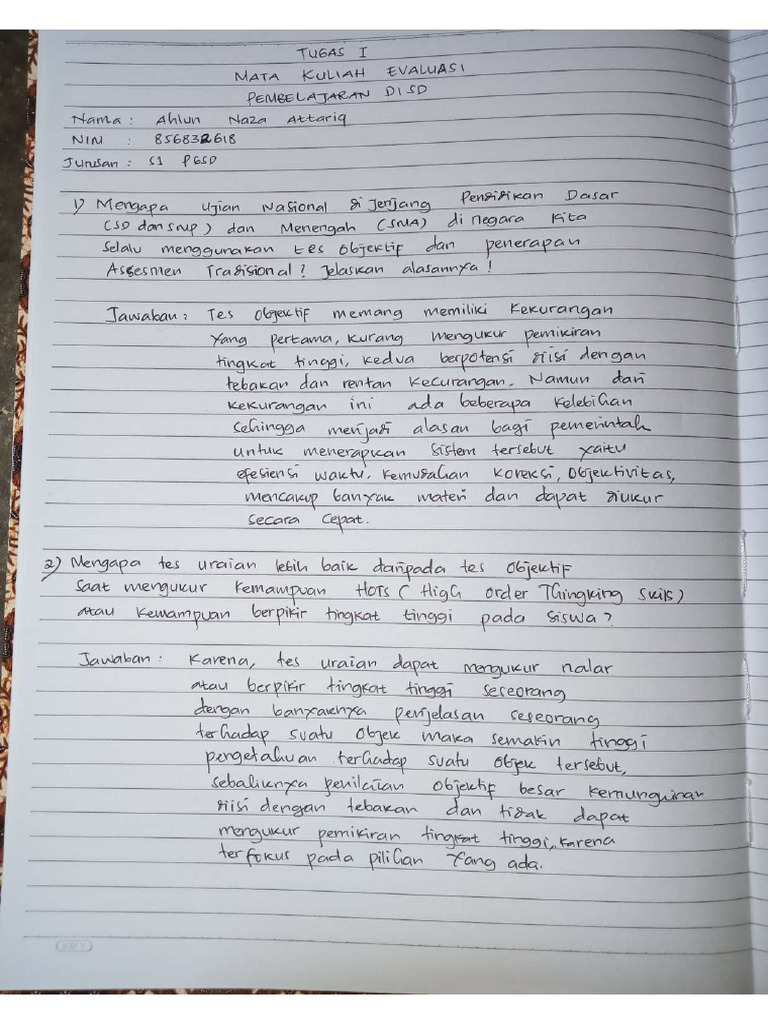 TUGAS I
MATA KULIAH EVALUASI
PEMBELAJARAN DI SD
Nama : Ahlun Naza Attariq
NIM : 856832618
Jurusan : S1 PGSD
1) Mengapa Ujian Nasional di Jenjang Pendidikan Dasar
(SD dan SMP) dan Menengah (SMA) di negara kita
selalu menggunakan tes objektif dan penerapan
Assesmen Tradisional? Jelaskan alasannya!
Jawaban : Tes objektif memang memiliki kekurangan
yang pertama, kurang mengukur pemikiran
tingkat tinggi, kedua berpotensi diisi dengan
tebakan dan rentan kecurangan. Namun dari
kekurangan ini ada beberapa kelebihan
sehingga menjadi alasan bagi pemerintah
untuk menerapkan sistem tersebut yaitu
efesiensi waktu, kemudahan koreksi, objektivitas,
mencakup banyak materi dan dapat diukur
secara cepat.
2) Mengapa tes uraian lebih baik daripada tes objektif
saat mengukur kemampuan HOTS (High order Thingking Skils)
atau kemampuan berpikir tingkat tinggi pada siswa?
Jawaban : Karena, tes uraian dapat mengukur nalar
atau berpikir tingkat tinggi seseorang
dengan banyaknya penjelasan seseorang
terhadap suatu objek maka semakin tinggi
pengetahuan terhadap suatu objek tersebut,
sebaliknya penilaian objektif besar kemungkinan
diisi dengan tebakan dan tidak dapat
mengukur pemikiran tingkat tinggi, karena
terfokus pada pilihan yang ada.